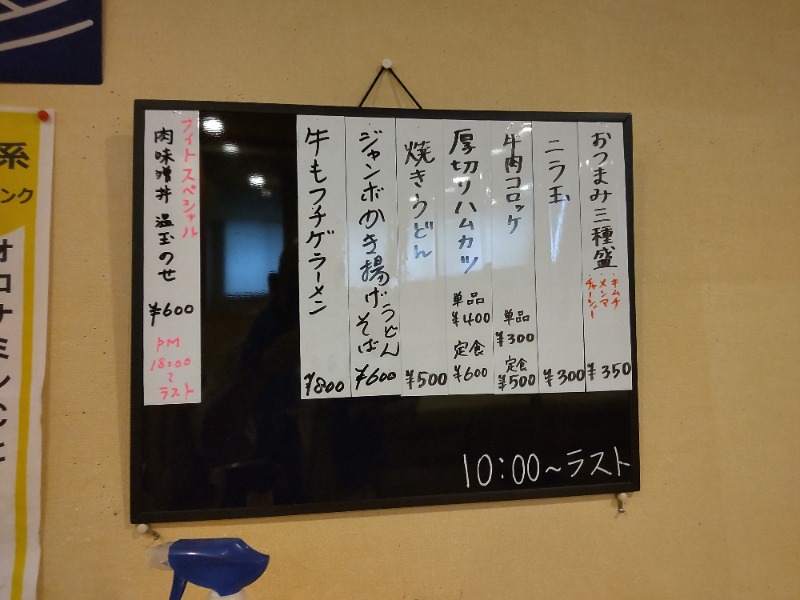 おつまみ三種盛
・キムチ
・メンマ
・チャーシュー
¥350
ニラ玉
¥300
牛肉コロッケ
単品
¥300
定食
¥500
厚切りハムカツ
単品
¥400
定食
¥600
焼きうどん
¥500
ジャンボかき揚げうどん
そば
¥600
牛もつチゲラーメン
¥800
ナイトスペシャル
肉味噌丼 温玉のせ
¥600
PM
18:00
~
ラスト
10:00~ラスト
系
ンク
オロナミンCと